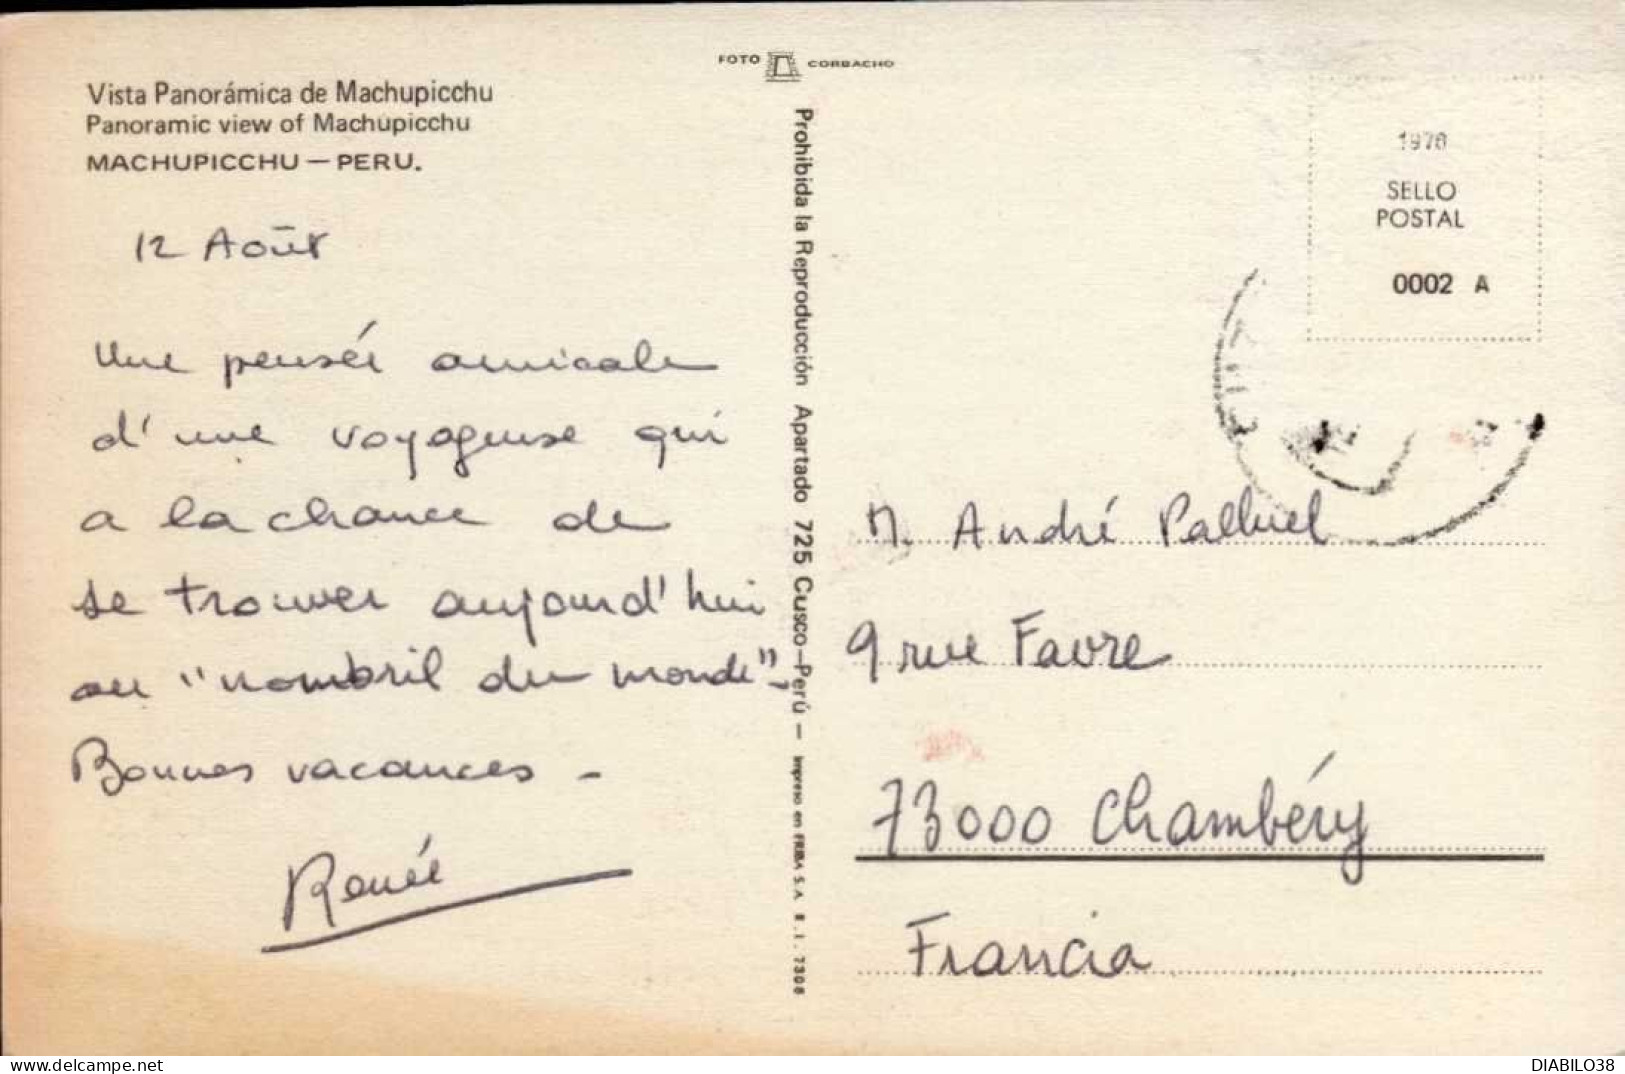 FOTO CORBACHO
Vista Panorámica de Machupicchu
Panoramic view of Machupicchu
MACHUPICCHU — PERU.
12 Août
Une pensée amicale
d'une voyageuse qui
a la chance de
se trouver aujourd'hui
au "nombril du monde".
Bonnes vacances -
Renée
Prohibida la Reproducción Apartado 725 Cusco-Perú — Impreso en FRIBA S.A. R.I. 7308
1978
SELLO
POSTAL
0002 A
M. André Palluel
9 rue Favre
73000 Chambéry
Francia
delcampe.net
DIABILO38